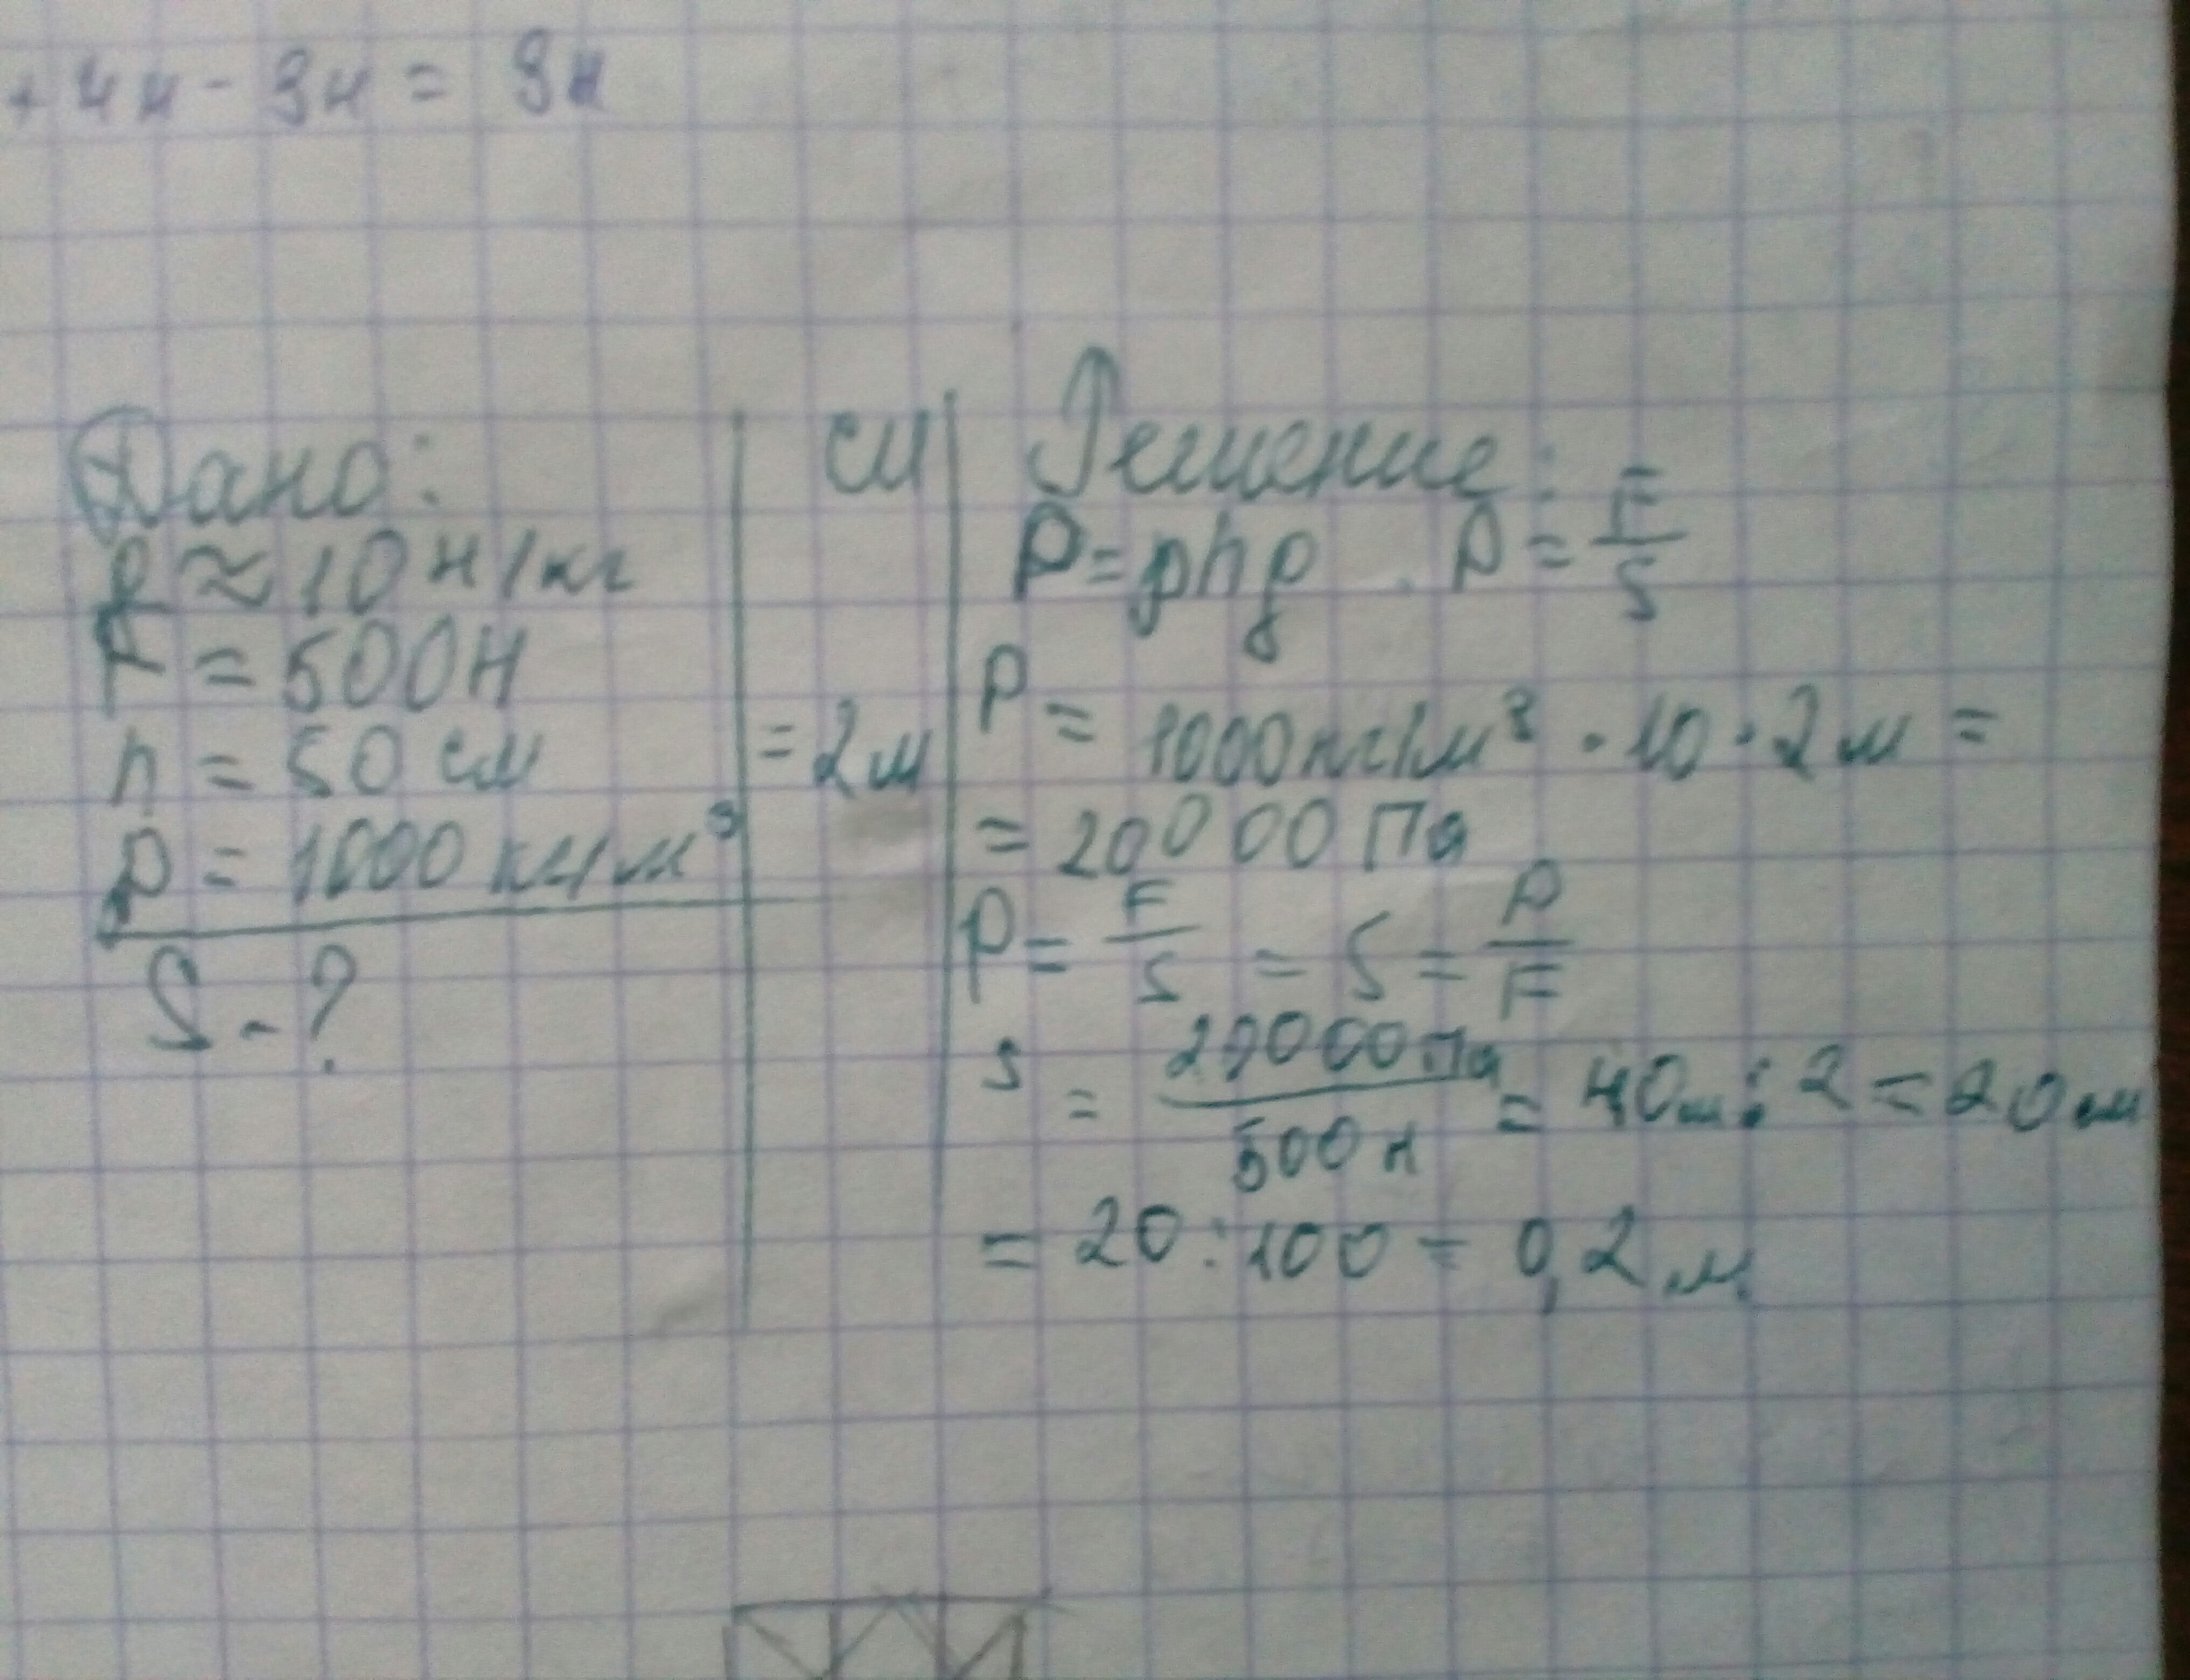 + 4н - 3н = 9н
Дано:
g ≈ 10 н/кг
F = 500Н
h = 50 см
ρ = 1000 кг/м³
S - ?
СИ
= 2м
Решение:
P = ρhg P = F/S
P = 1000кг/м³ · 10 · 2м =
= 20000 Па
P = F/S = S = P/F
S = 20000Па/500н = 40м : 2 = 20м
= 20 : 100 = 0,2 м